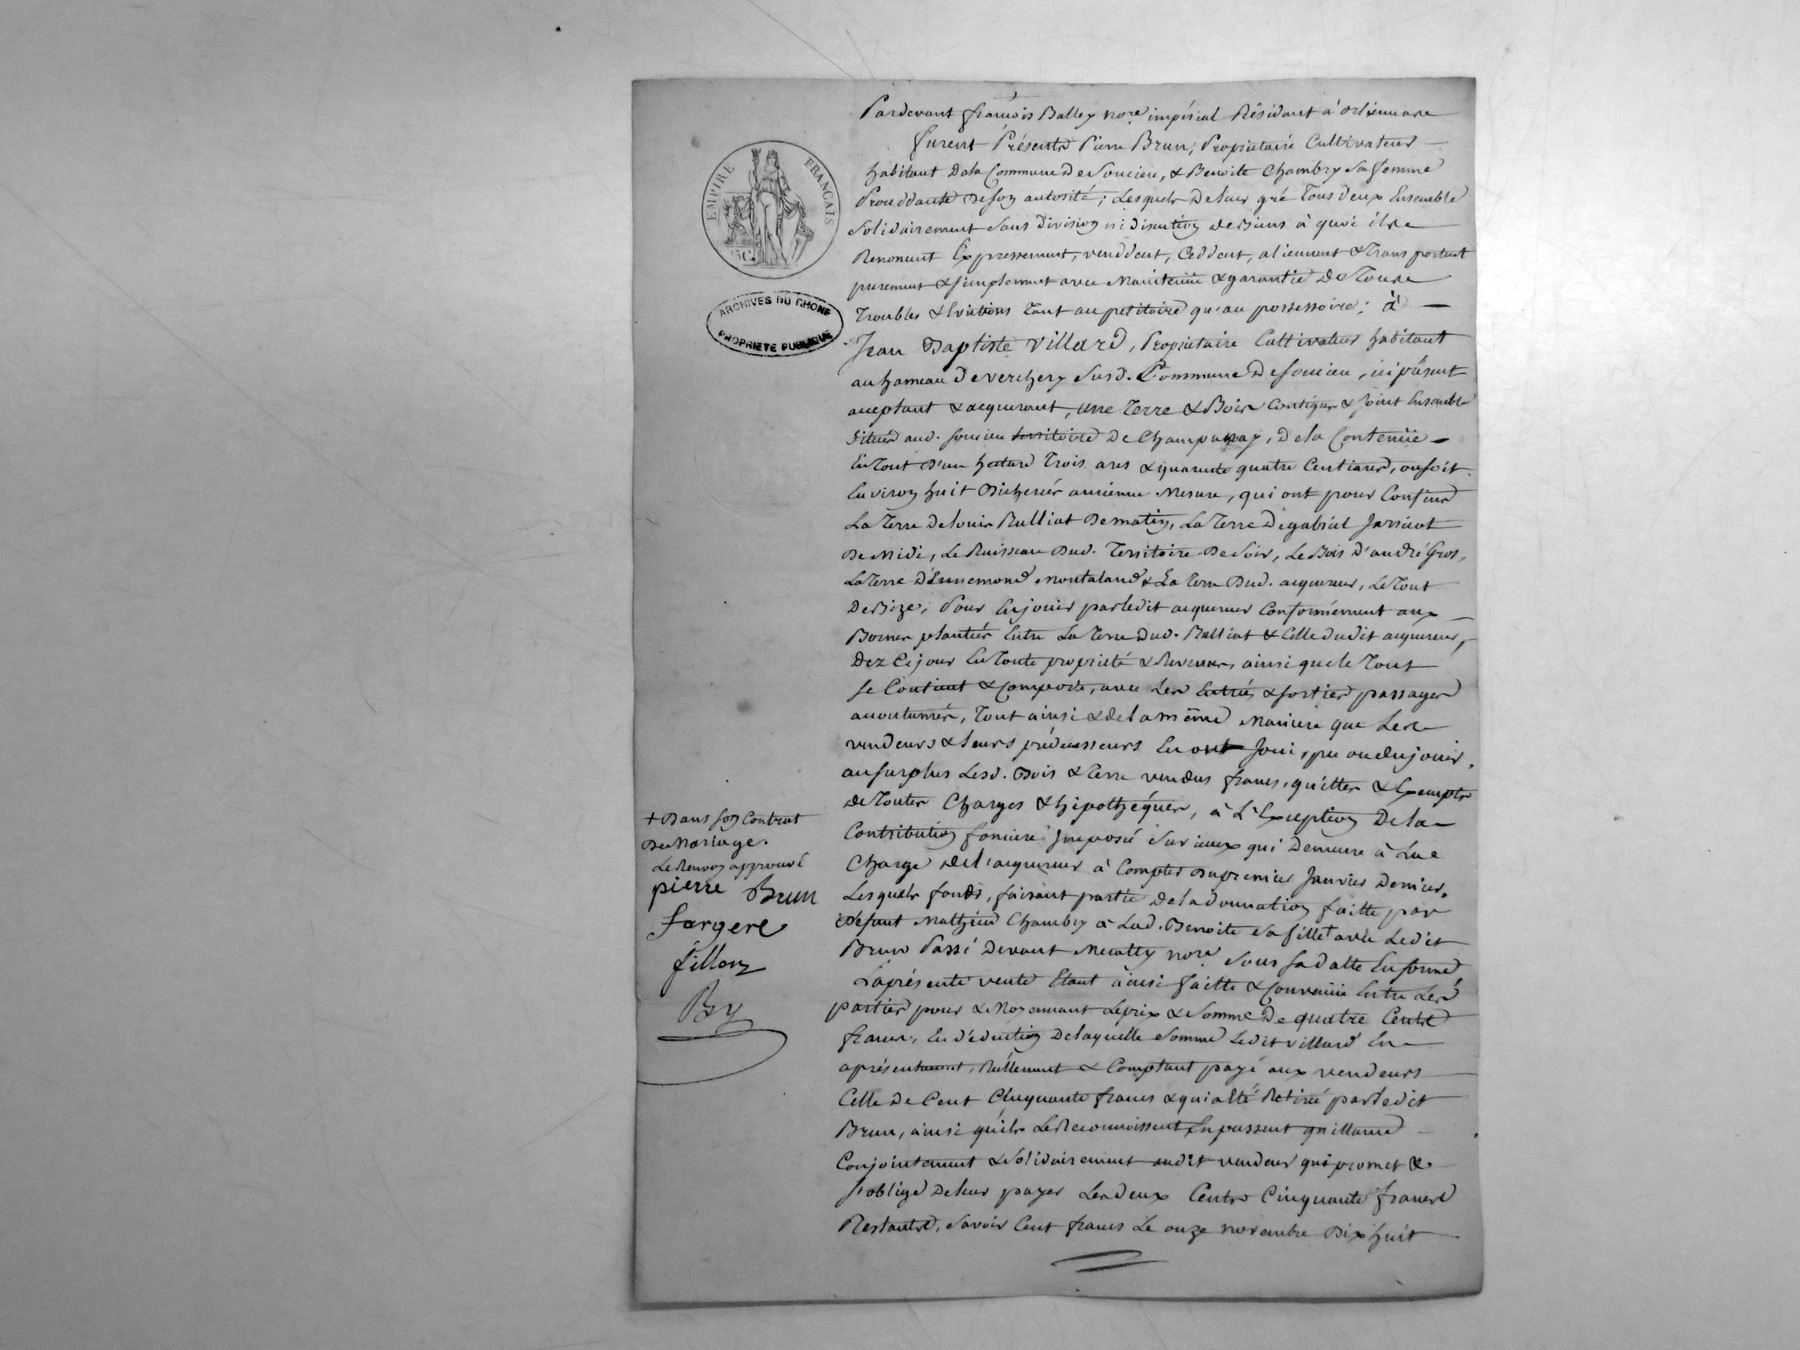 Pardevant françois Balley nore impérial Résidant à Orliennare
furent Présents Pierre Brun, Propriétaire Cultivateur
habitant dela Commune de Soucieu, & Benoite Chambry Sa femme
Procédante de son autorité; Lesquels de leur gré Tous deux Ensemble
Solidairement Sans division ni discution de Biens à quoi ils
Renoncent Expressement, venddent, Ceddent, aliennent & Transportent
purement & simplement avec Maintenüe & garantie De Tous
Troubles & Evictions Tant au petitoire qu'au possessoire; à
Jean Baptiste Villard, Propriétaire Cultivateur habitant
au hameau De verchery Susd. Commune De Soucieu, ici présent
acceptant & acquerant, une Terre & Bois Contigus & Joint Ensemble
Situés aud. Soucieu territoire De Champanay, De la Contenüe
En Tout d'un hectare Trois ares & quarante quatre Centiares, ou soit
Environ huit Bicherés ancienne Mesure, qui ont pour Confins
La Terre de Louis Rulliat De matin, La Terre De gabriel Jarricot
De Midi, Le Ruisseau Dud. Territoire De Soir, Le Bois d'andré Gros,
La Terre d'Ennemond Montaland & La Terre Dud. acquereur, Le Tout
De Bize; Pour En jouir par ledit acquereur Conformément aux
Bornes plantées Entre La Terre Dud. Rulliat & Celle dudit acquereur,
Dez Ce jour En Toute propriété & Revenus, ainsi que le Tout
se Contient & Comporte, avec Les Entrées & sorties passages
accoutumés, Tout ainsi & de la même Maniere que Les
vendeurs & leurs prédecesseurs En ont Joui, pu ou du jouir,
au surplus Lesd. Bois & Terre vendus francs, quittes & Exempts
de Toutes Charges & hipothéques, à L'Exception De la
Contribution fonciere Imposée Sur iceux qui Demeure à La
Charge de l'acquereur à Compter du premier Janvier Dernier.
Lesquels fonds, faisant partie de la donnation faitte par
défunt Mathieu Chambry à Lad. Benoite Sa fille + avec Ledit
Brun Passé Devant nore Sous Sa datte En forme
La présente vente Etant ainsi faitte & Convenüe Entre Les
parties pour & Moyennant Le prix & Somme De quatre Cents
francs, En déduction de laquelle Somme Ledit Villard En
a présentement, Réellement & Comptant payé aux vendeurs
Celle De Cent Cinquante francs & qui a Eté Retiré par ledit
Brun, ainsi qu'ils Le Reconnoissent En passent quittance
Conjointement & Solidairement audit vendeur qui promet &
s'oblige De leur payer Les deux Cents Cinquante francs
Restants, Savoir Cent francs Le onze novembre Dix huit
EMPIRE FRANÇAIS
ARCHIVES DU RHONE
PROPRIETE PUBLIQUE
+ Dans son Contrat
De Mariage.
Le Renvoy approuvé
pierre Brun
fargere
fillon